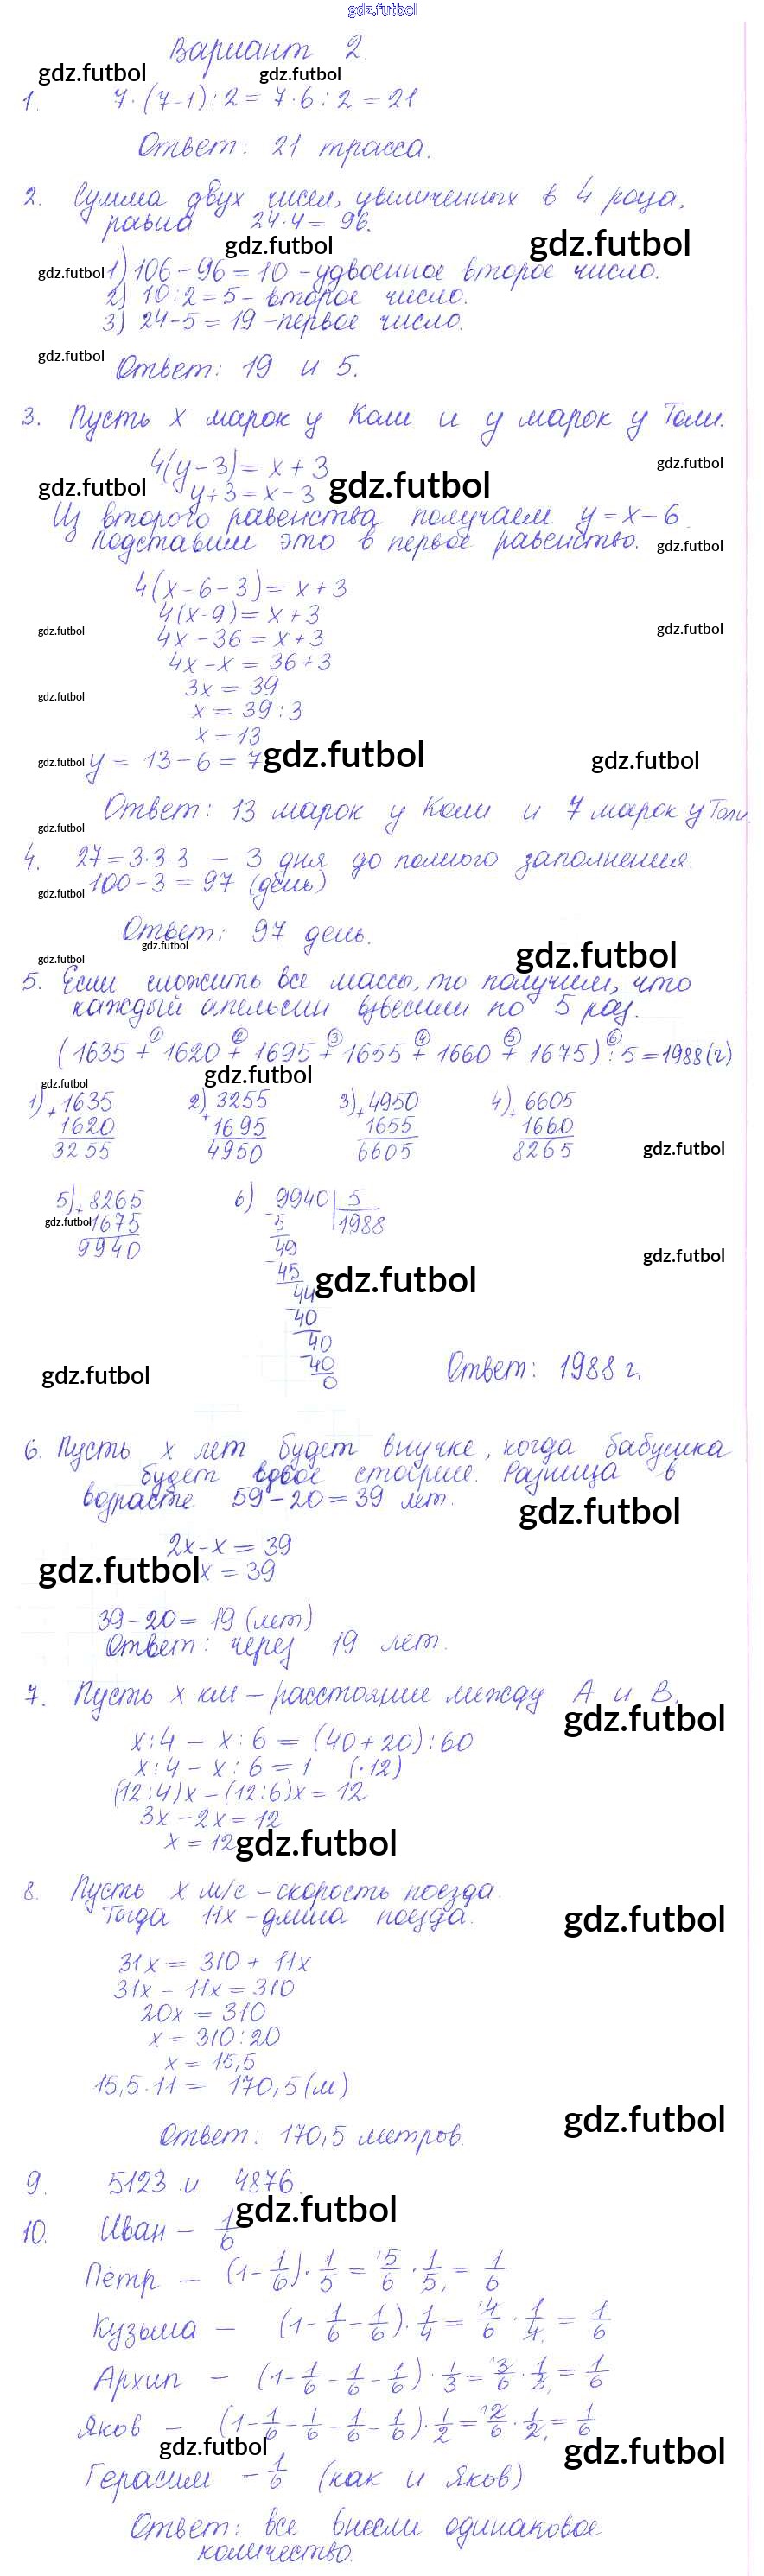 gdz.futbol
Вариант 2.
gdz.futbol gdz.futbol
1. 7·(7-1):2 = 7·6:2 = 21
Ответ: 21 трасса.
2. Сумма двух чисел, увеличенных в 4 раза,
равна 24·4 = 96.
gdz.futbol gdz.futbol
gdz.futbol 1) 106-96=10 -удвоенное второе число.
2) 10:2=5- второе число.
3) 24-5=19 -первое число.
gdz.futbol Ответ: 19 и 5.
3. Пусть х марок у Коли и у марок у Толи.
4(y-3)=x+3 gdz.futbol
gdz.futbol y+3=x-3 gdz.futbol
Из второго равенства получаем y=x-6.
Подставим это в первое равенство. gdz.futbol
4(x-6-3)=x+3
4(x-9)=x+3
gdz.futbol 4x-36=x+3 gdz.futbol
4x-x=36+3
gdz.futbol 3x=39
x=39:3
x=13
gdz.futbol y=13-6=7 gdz.futbol gdz.futbol
Ответ: 13 марок у Коли и 7 марок у Толи.
gdz.futbol
4. 27=3·3·3 - 3 дня до полного заполнения.
gdz.futbol 100-3=97 (день)
Ответ: 97 день.
gdz.futbol
gdz.futbol gdz.futbol
5. Если сложить все массы, то получим, что
каждый апельсин взвесили по 5 раз.
1 2 3 4 5 6
(1635+1620+1695+1655+1660+1675):5=1988(г)
gdz.futbol gdz.futbol
1) + 1635 2) + 3255 3) + 4950 4) + 6605
1620 1695 1655 1660
3255 4950 6605 8265 gdz.futbol
5) + 8265 6) 9940 | 5
gdz.futbol 1675 - 5 1988
9940 49
gdz.futbol
- 45 gdz.futbol
44
- 40
40
- 40
gdz.futbol 0 Ответ: 1988 г.
6. Пусть х лет будет внучке, когда бабушка
будет вдвое старше. Разница в
возрасте 59-20=39 лет.
gdz.futbol
2x-x=39
gdz.futbol x=39
39-20=19 (лет)
Ответ: через 19 лет.
7. Пусть х км-расстояние между А и В.
gdz.futbol
x:4 - x:6 = (40+20):60
x:4 - x:6 = 1 (·12)
(12:4)x-(12:6)x=12
3x-2x=12
x=12 gdz.futbol
8. Пусть х м/с-скорость поезда.
Тогда 11х-длина поезда. gdz.futbol
31x=310+11x
31x-11x=310
20x=310
x=310:20
x=15,5
15,5·11=170,5(м)
gdz.futbol
Ответ: 170,5 метров.
9. 5123 и 4876.
gdz.futbol
10. Иван - 1/6
Пётр - (1-1/6)·1/5=5/6·1/5=1/6
Кузьма - (1-1/6-1/6)·1/4=4/6·1/4=1/6
Архип - (1-1/6-1/6-1/6)·1/3=3/6·1/3=1/6
Яков - (1-1/6-1/6-1/6-1/6)·1/2=2/6·1/2=1/6
gdz.futbol gdz.futbol
Герасим -1/6 (как и Яков)
Ответ: все внесли одинаковое
количество.